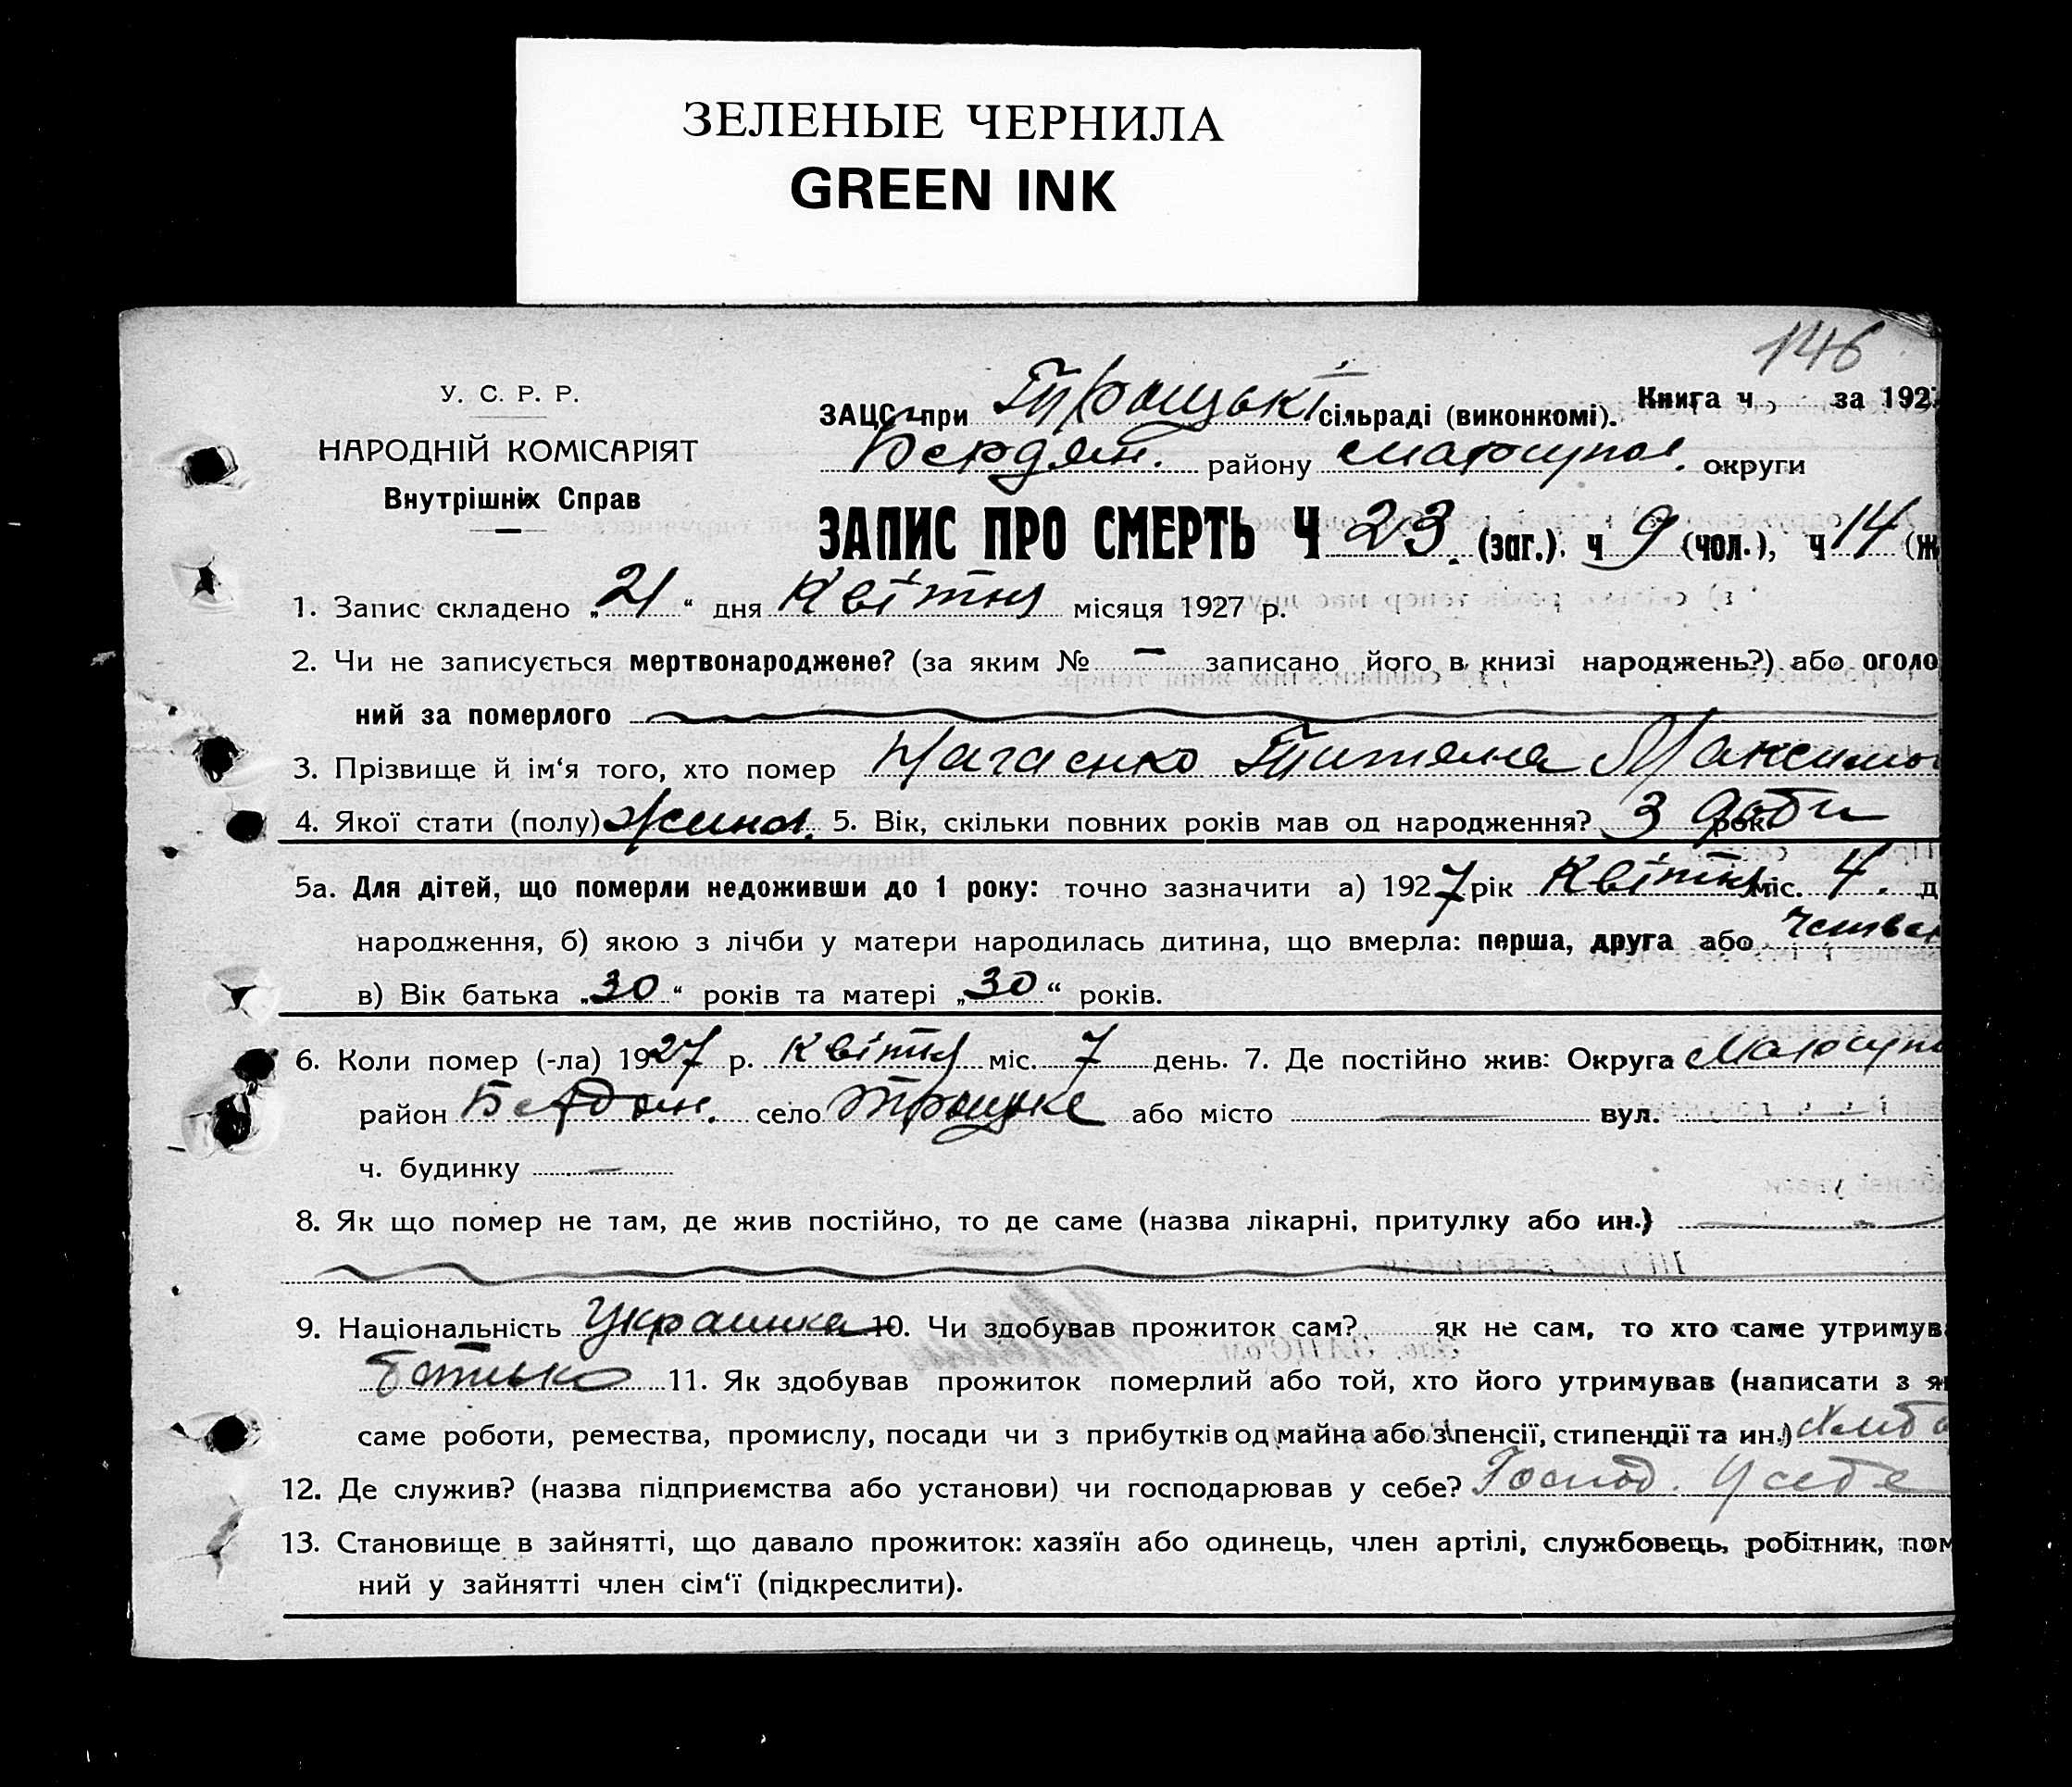 ЗЕЛЕНЫЕ ЧЕРНИЛА
GREEN INK
146
У. С. Р. Р.
НАРОДНІЙ КОМІСАРІЯТ
Внутрішніх Справ
ЗАЦС при Троцькі сільраді (виконкомі). Книга ч. за 192
Бердян. району Маріупол. округи
ЗАПИС ПРО СМЕРТЬ Ч 23 (заг.). ч 9 (чол.), ч 14 (ж
1. Запис складено „21“ дня Квітня місяця 1927 р.
2. Чи не записується мертвонароджене? (за яким № — записано його в книзі народжень?) або оголо
ний за померлого
3. Прізвище й ім‘я того, хто помер Татяна Максимо
4. Якої стати (полу) жиноч. 5. Вік, скільки повних років мав од народження? 3 доби рок
5а. Для дітей, що померли недоживши до 1 року: точно зазначити а) 1927 рік Квітня міс. 4. д
народження, б) якою з лічби у матери народилась дитина, що вмерла: перша, друга або четвер
в) Вік батька „30“ років та матері „30“ років.
6. Коли помер (-ла) 1927 р. Квітня міс. 7 день. 7. Де постійно жив: Округа Маріупо
район Бердян. село Троцьке або місто — вул.
ч. будинку —
8. Як що помер не там, де жив постійно, то де саме (назва лікарні, притулку або ин.) —
9. Національність Українка 10. Чи здобував прожиток сам? як не сам, то хто саме утримув
батько 11. Як здобував прожиток померлий або той, хто його утримував (написати з як
саме роботи, ремества, промислу, посади чи з прибутків од майна або з пенсії, стипендії та ин.) Хліб
12. Де служив? (назва підприємства або установи) чи господарював у себе? Господ. у себе
13. Становище в зайнятті, що давало прожиток: хазяїн або одинець, член артілі, службовець, робітник, пом
ний у зайнятті член сім‘ї (підкреслити).